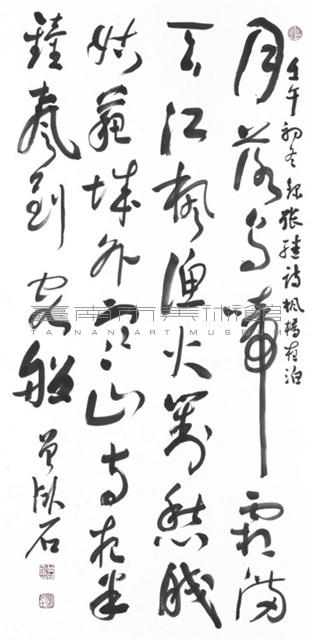 壬午初冬錄張繼詩楓橋夜泊
月落烏啼霜滿
天江楓漁火對愁眠
姑蘇城外寒山寺夜半
鐘聲到客船
臺南市美術館
TAINAN ART MUSEUM